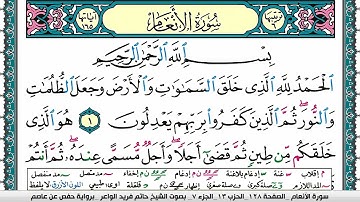 سُورَةُ الْأَنْعَامِ
بِسْمِ اللَّهِ الرَّحْمَٰنِ الرَّحِيمِ
الْحَمْدُ لِلَّهِ الَّذِي خَلَقَ السَّمَاوَاتِ وَالْأَرْضَ وَجَعَلَ الظُّلُمَاتِ
وَالنُّورَ ۖ ثُمَّ الَّذِينَ كَفَرُوا بِرَبِّهِمْ يَعْدِلُونَ ١ هُوَ الَّذِي
خَلَقَكُم مِّن طِينٍ ثُمَّ قَضَىٰ أَجَلًا ۖ وَأَجَلٌ مُّسَمًّى عِندَهُ ۖ ثُمَّ أَنتُمْ
سورة الأنعام الصفحة ١٢٨ الحزب ١٣ الجزء ٧ بصوت الشيخ حاتم فريد الواعر - برواية حفص عن عاصم